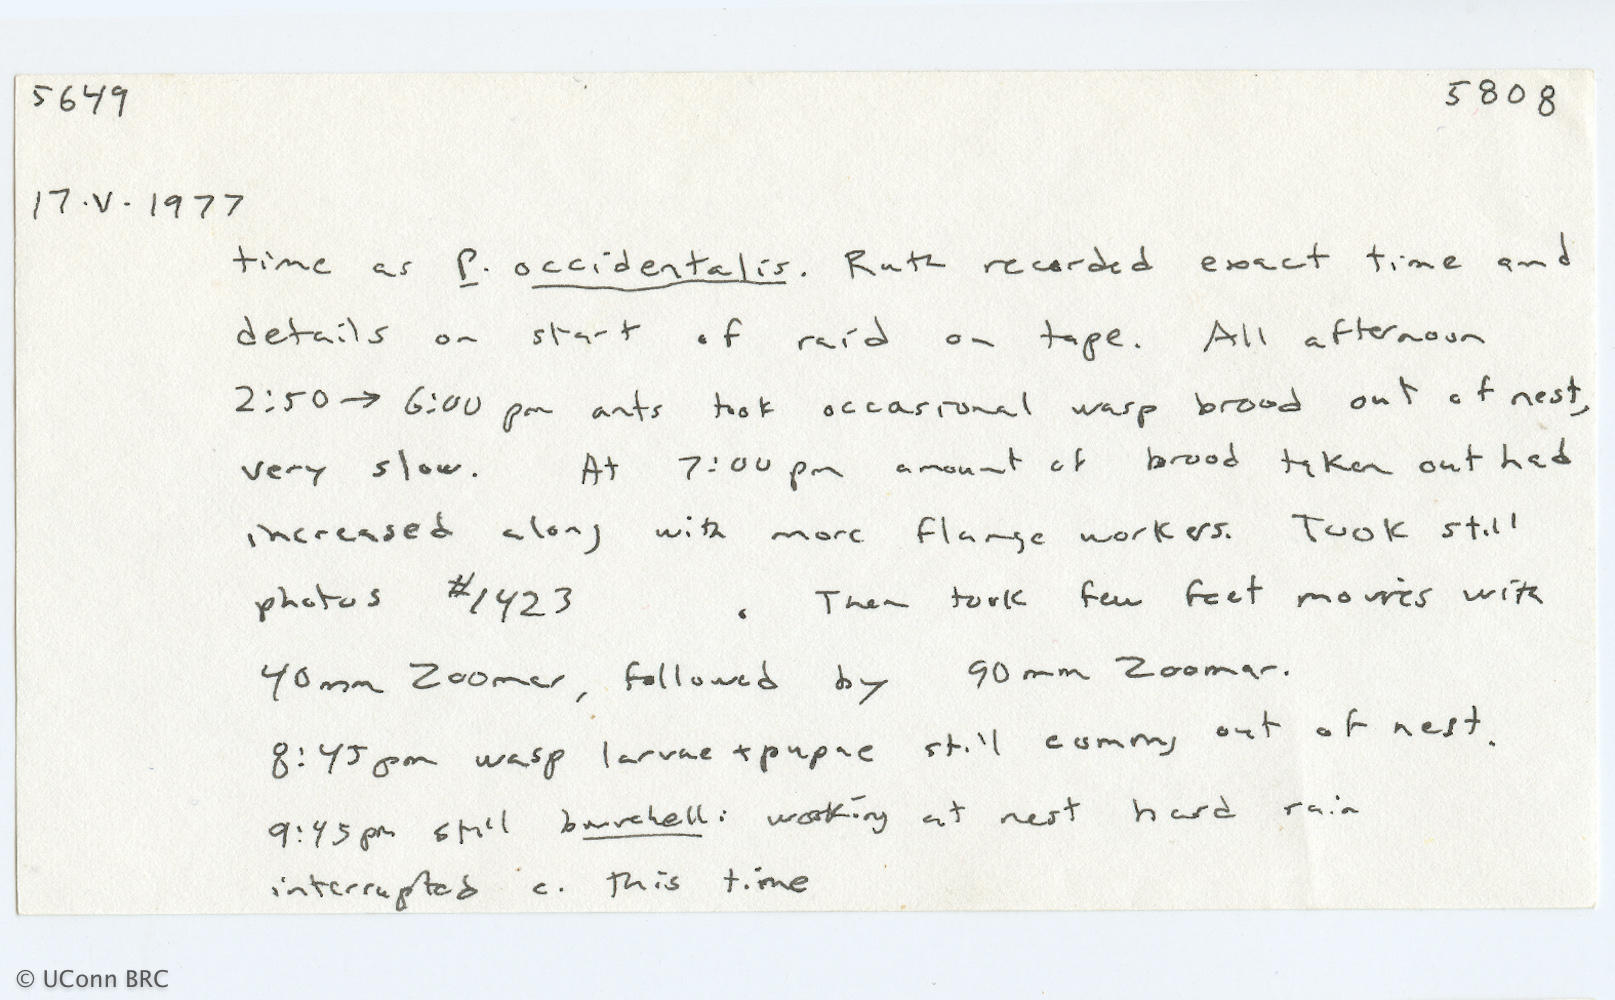 5649 5808
17.V.1977
time as P. occidentalis. Ruth recorded exact time and
details on start of raid on tape. All afternoon
2:50 → 6:00 pm ants took occasional wasp brood out of nest,
very slow. At 7:00 pm amount of brood taken out had
increased along with more flange workers. Took still
photos #1423 . Then took few feet movies with
40mm Zoomar, followed by 90mm Zoomar.
8:45pm wasp larvae + pupae still coming out of nest.
9:45pm still burchelli working at nest hard rain
interrupted c. this time
© UConn BRC